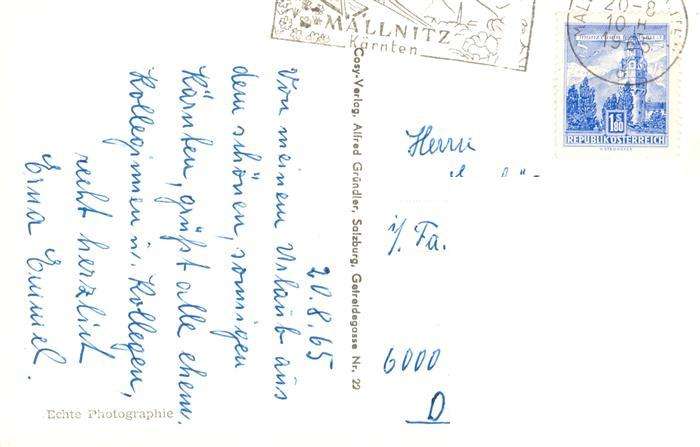 MALLNITZ
Kärnten
20-8
1965
1 S
1.80
REPUBLIK ÖSTERREICH
20.8.65
Von meinem Urlaub aus
dem schönen, sonnigen
Kärnten, grüßt alle ehem.
Kolleginnen u. Kollegen,
recht herzlich
Erna
Echte Photographie
Cosy-Verlag, Alfred Gründler, Salzburg, Getreidegasse Nr. 22
Herrn
i/Fa.
6000
D